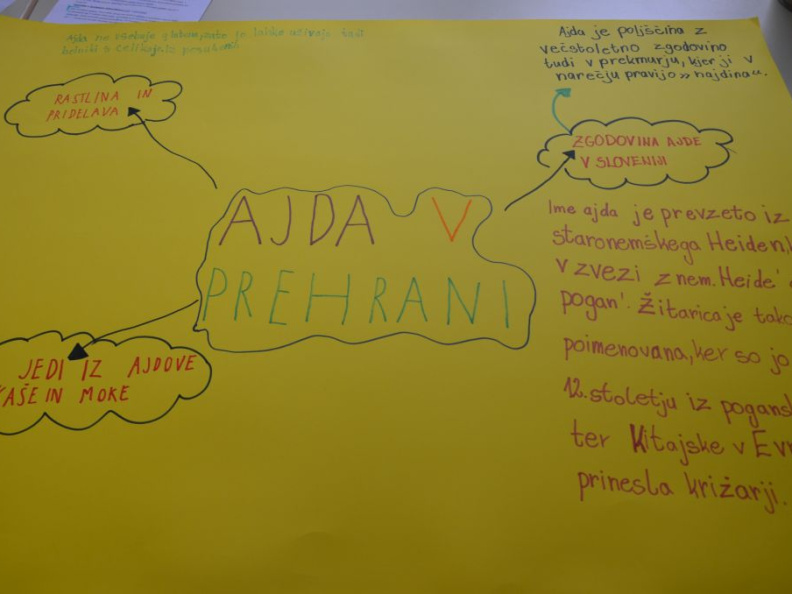 Ajda ne vsebuje glutena, zato je
RASTLINA IN
PRIDELAVA
Ajda je poljščina z
večstoletno zgodovino
tudi v prekmurju, kjer ji v
narečju pravijo » hajdina«.
ZGODOVINA AJDE
V SLOVENIJI
AJDA V
PREHRANI
JEDI IZ AJDOVE
KAŠE IN MOKE
Ime ajda je prevzeto iz
staronemškega Heiden,
v zvezi z nem. Heide'
pogan'. Žitarica je tako
poimenovana, ker so jo
12. stoletju iz pogans
ter Kitajske v Evr
prinesla križarji.